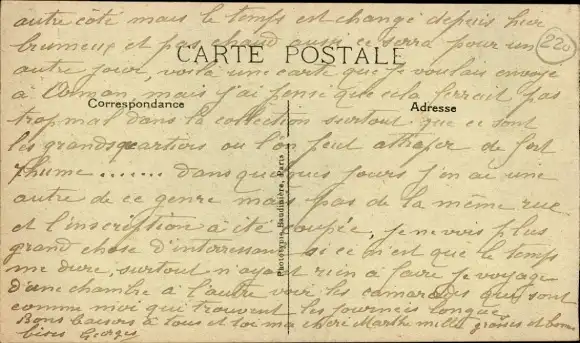 autre côté mais le temps est changé depuis hier
brumeux et pas chaud aussi ce serra pour un
220
CARTE POSTALE
autre jour, voilà une carte que je voulais envoyé
à Osman mais j'ai pensé que cela ferrait pas
Correspondance
Adresse
trop mal dans la collection surtout que ce sont
les grands quartiers ou l'on peut attraper de fort
rhume ....... dans quelques jours j'en ai une
autre de ce genre mais pas de la même rue
et l'inscription à été coupée, je ne vois plus
grand chose d'interressant si ce n'est que le temps
me dure, surtout n'ayant rien à faire je voyage
d'une chambre à l'autre voir les camarades qui sont
comme moi qui trouvent les journeis longue
Bons baisers à tous et toi ma chère Marthe mille grosses et bonnes
bises Georges
Phototypie Baudinière, Paris